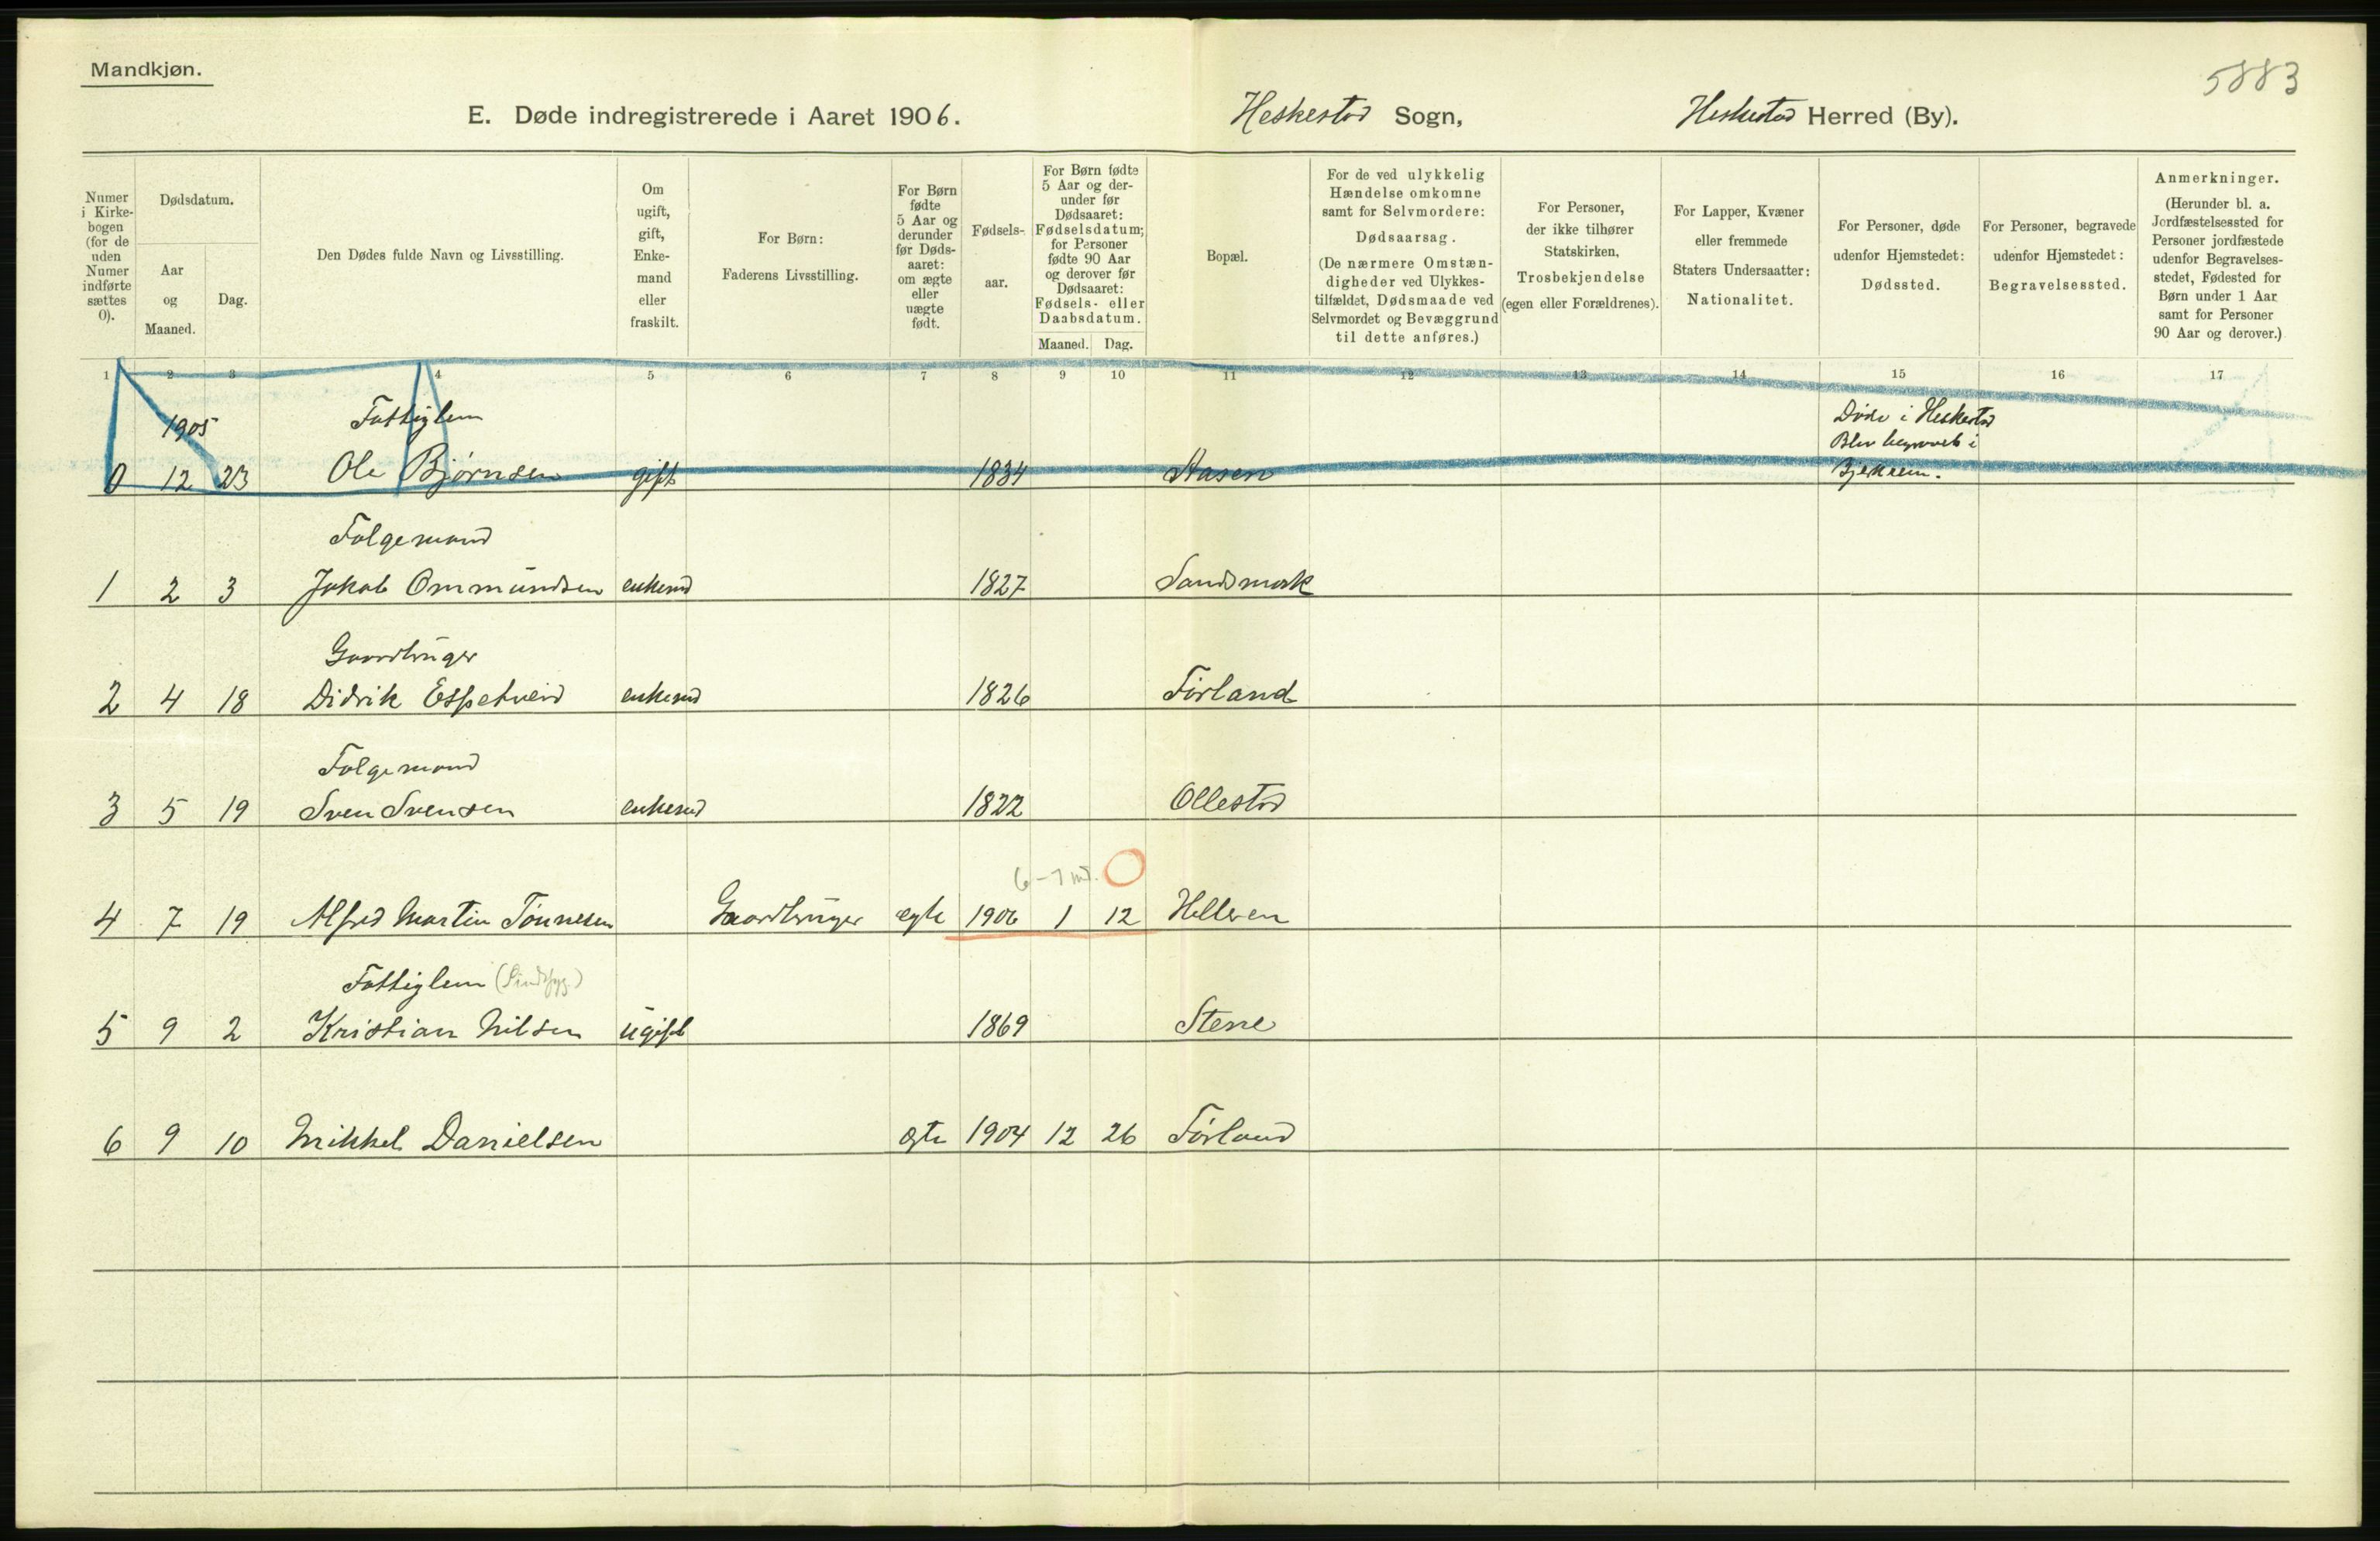 Mandkjøn.
5883
E. Døde indregistrerede i Aaret 1906. Heskestad Sogn, Heskestad Herred (By).
Numer i Kirke- bogen (for de uden Numer indførte sættes 0).
Dødsdatum.
Aar og Maaned.
Dag.
Den Dødes fulde Navn og Livsstilling.
Om ugift, gift, Enke- mand eller fraskilt.
For Børn: Faderens Livsstilling.
For Børn fødte 5 Aar og derunder før Døds- aaret: om ægte eller uægte født.
Fødsels- aar.
For Børn fødte 5 Aar og der- under før Dødsaaret: Fødselsdatum; for Personer fødte 90 Aar og derover før Dødsaaret: Fødsels- eller Daabsdatum.
Maaned. Dag.
Bopæl.
For de ved ulykkelig Hændelse omkomne samt for Selvmordere: Dødsaarsag. (De nærmere Omstæn- digheder ved Ulykkes- tilfældet, Dødsmaade ved Selvmordet og Bevæggrund til dette anføres.)
For Personer, der ikke tilhører Statskirken, Trosbekjendelse (egen eller Forældrenes).
For Lapper, Kvæner eller fremmede Staters Undersaatter: Nationalitet.
For Personer, døde udenfor Hjemstedet: Dødssted.
For Personer, begravede udenfor Hjemstedet: Begravelsessted.
Anmerkninger. (Herunder bl. a. Jordfæstelsessted for Personer jordfæstede udenfor Begravelses- stedet, Fødested for Børn under 1 Aar samt for Personer 90 Aar og derover.)
1 2 3 4 5 6 7 8 9 10 11 12 13 14 15 16 17
1905 Fattiglem Døde i Heskestad
Blev begravet i
0 12 23 Ole Bjørnsen gift 1834 Aasen Bjerkrem.
Folgemand
1 2 3 Jakob Ommundsen enkemd 1827 Sandsmark
Gaardbruger
2 4 18 Didrik Espetveid enkemd 1826 Førland
Folgemand
3 5 19 Sven Svensen enkemd 1822 Ollestad
6-7 md.
4 7 19 Alfred Martin Tønnesen Gaardbruger egte 1906 1 12 Helleren
Fattiglem (Sindssyg.)
5 9 2 Kristian Nilsen ugift 1869 Stene
6 9 10 Mikkel Danielsen egte 1904 12 26 Førland